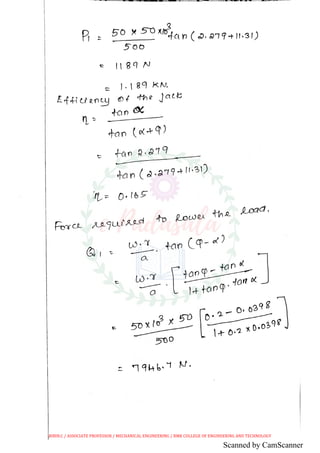 P₁ = 50 × 50 × 10³ / 500 tan (2.279 + 11.31)
= 1189 N
= 1.189 KN.
Efficiency of the Jack
η = tan α / tan (α + φ)
= tan 2.279 / tan (2.279 + 11.31)
η = 0.165
Force required to Lower the Load,
Q₁ = W.r / a . tan (φ - α)
= W.r / a [ tan φ - tan α / 1 + tan φ . tan α ]
= 50 × 10³ × 50 / 500 [ 0.2 - 0.0398 / 1 + 0.2 × 0.0398 ]
= 7946.7 N.
/ ASSOCIATE PROFESSOR / MECHANICAL ENGINEERING / COLLEGE OF ENGINEERING AND TECHNOLOGY
Scanned by CamScanner